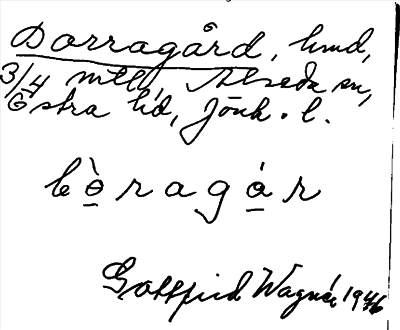 Dorragård, hmd,
3/4 mtl, Alseda sn,
Östra hd, Jönk. l.
bò̱ragá̱r
Gottfrid Wagnér 1946